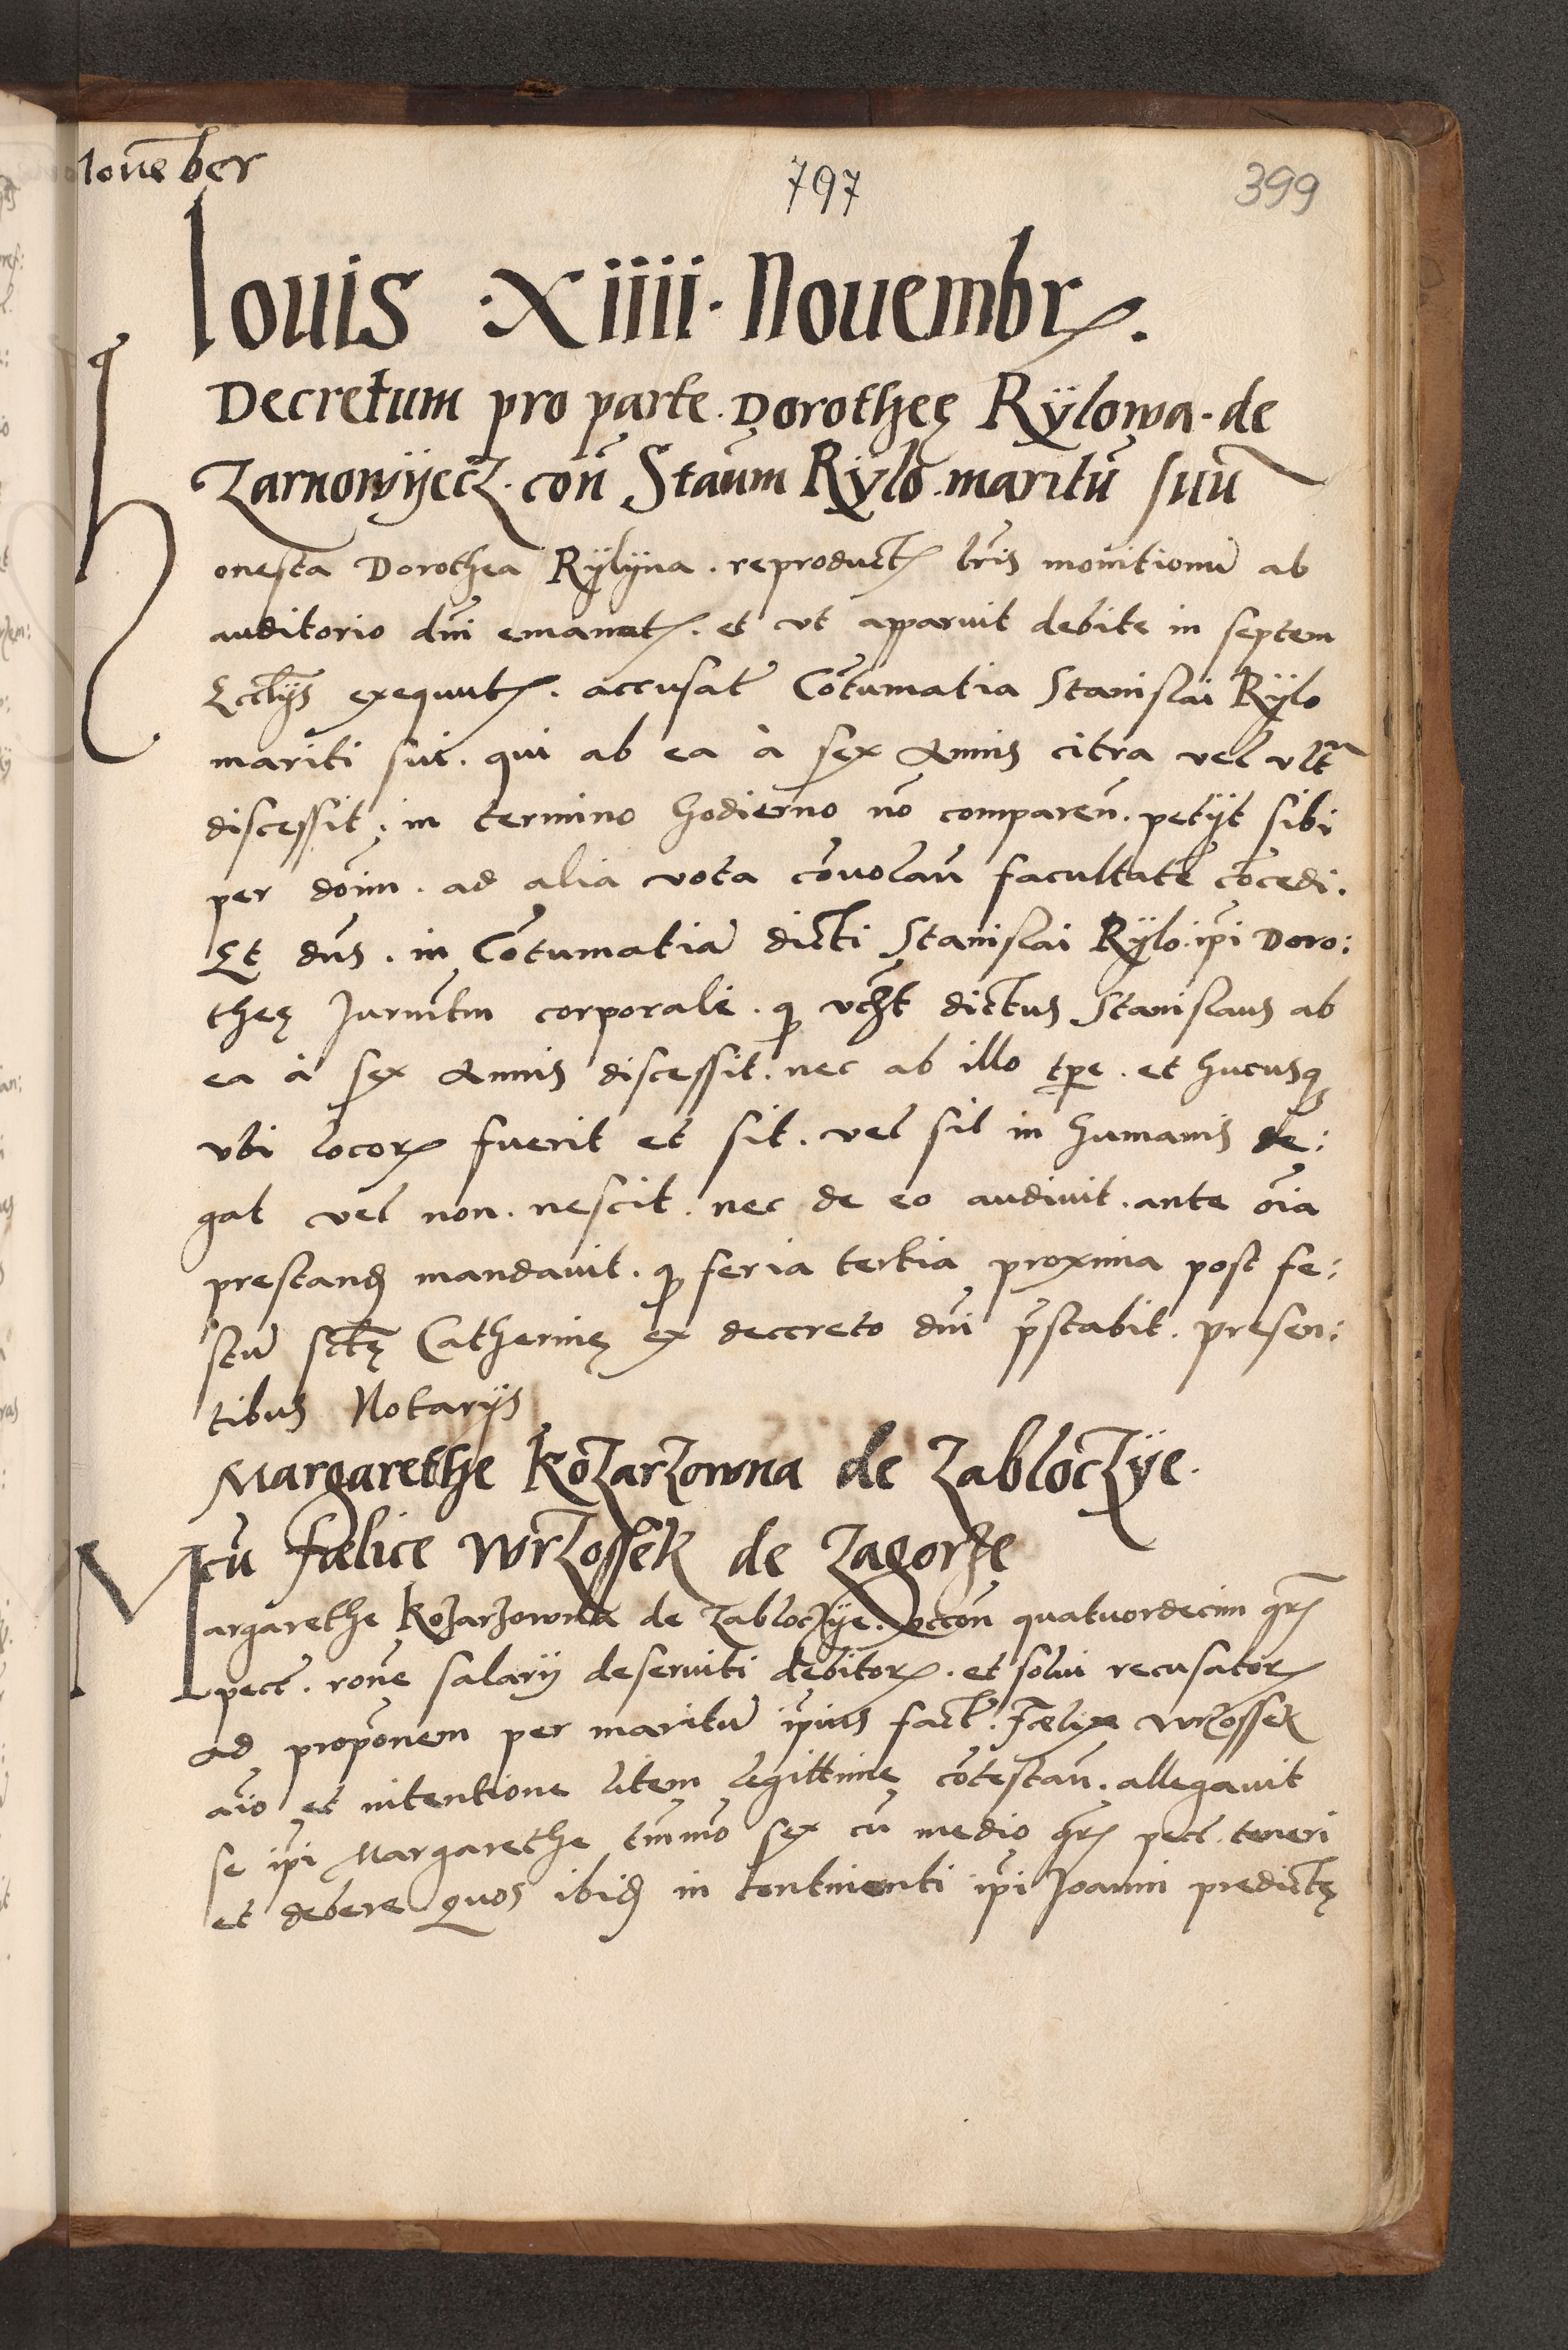 Nouēber
797
399
Iouis · Xiiii · Nouembrꝭ.
Decretum pro parte Dorotheę Rÿlowa de
Zarnowÿecz. con̄ Stāum Rÿlo maritū suū
Honesta Dorothea Rÿlÿna. reproductꝭ lrīs monitionū ab
auditorio dnī emanatꝭ. et vt apparuit debite in septem
Ecclīјs exequutꝭ. accusat̄ Cōtumatia Stanislai Rÿlo
mariti sui. qui ab ea à sex Annis citra vel vltᵃ
discessit: in termino hodierno nō comparen̄. petÿt sibi
per doīm. ad alia vota cōuolan̄ facultatē cōcedi.
Et dn̄s. in Cōtumatiā dicti Stanislai Rÿlo ip̄i Doro:
theę Jurmt̄m corporale. ꝙ vt̄ dictus Stanislaus ab
ea à sex Annis discessit. nec ab illo tp̄e. et hucusqꝫ
vbi locoꝝ fuerit et sit. vel sit in humanis de:
gat vel non. nescit. nec de eo audiuit. ante oīa
prestanđ mandauit. ꝙ feria tertia proxima post fe:
stū sctę̄ Catherinę ex deccreto dnī p̄stabit. presen:
tibus Notarijs
Margarethe Kozarzowna de Zabloczÿe.
cū Fælice Wrzossek de Zagorze
Margarethe Kozarzowna de Zabloczÿe. occōn quatuordecim gr̄ꝭ
pect. rōne salarÿ deseruiti debitoꝝ. et solui recusatoꝝ
ad propōnem per maritū ip̄ius fact. Fælix Wrzossek
aīo et intentione litem legittime cōtestan̄. allegauit
se ip̄i Margarethe tm̄mō sex cū medio gr̄ꝭ pect. teneri
et debere quos ibiđ in continenti ip̄i Joanni predictę